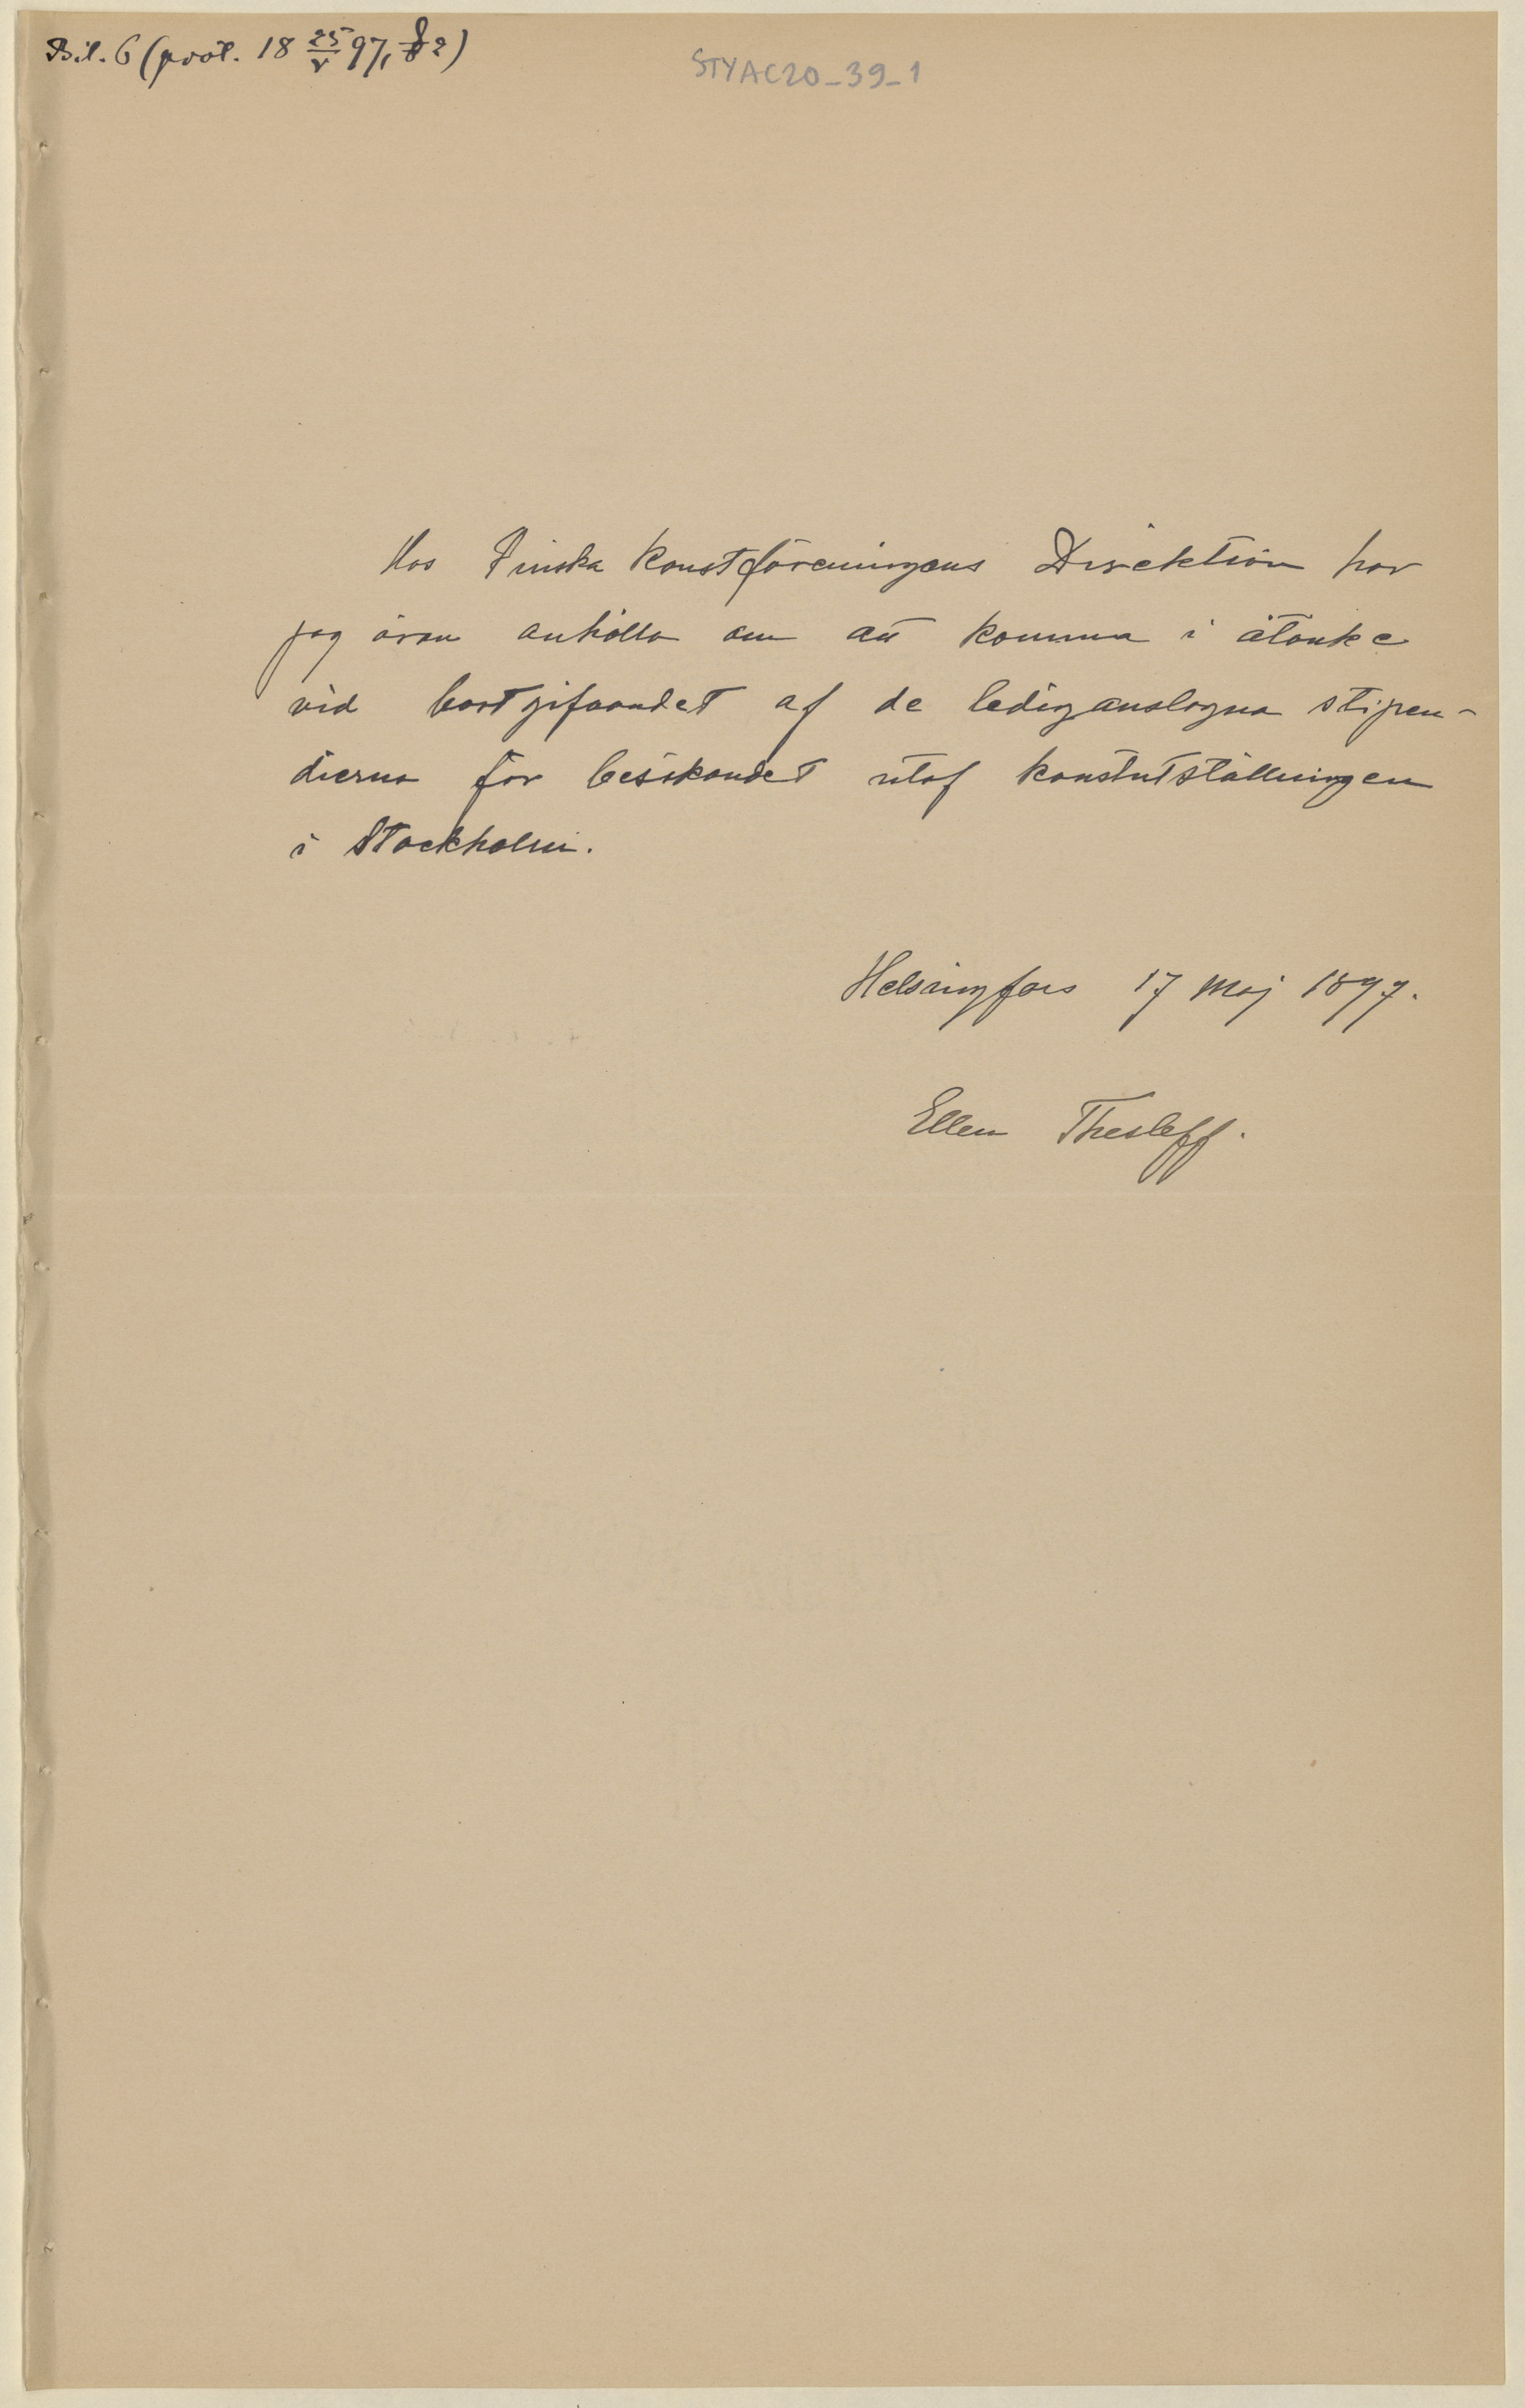 Bil. 6 (prot. 18 25/V 97, § 2)
STYAC20_39_1
Hos Finska Konstföreningens Direktion har
jag äran anhålla om att komma i åtanke
vid bortgifvandet af de lediganslagna stipen-
dierna för besökandet utaf konstutställningen
i Stockholm.
Helsingfors 17 Maj 1897.
Ellen Thesleff.